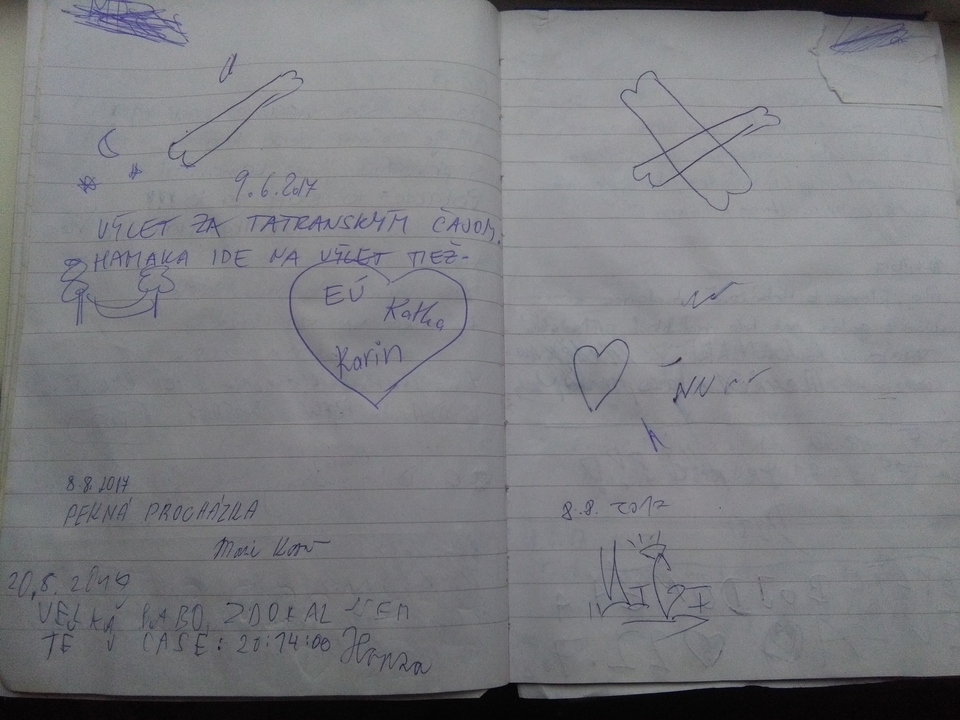 9.6.2017
VÝLET ZA TATRANSKÝM ČAJOM.
HAMAKA IDE NA VÝLET TIEŽ-
EÚ
Katka
Karin
8.8.2017
PEKNÁ PROCHÁZKA
20.8.
VELKÝ BABO, ZDOKAL
TĚ V CASE: 20:14:00 Honza
8.8. 2017